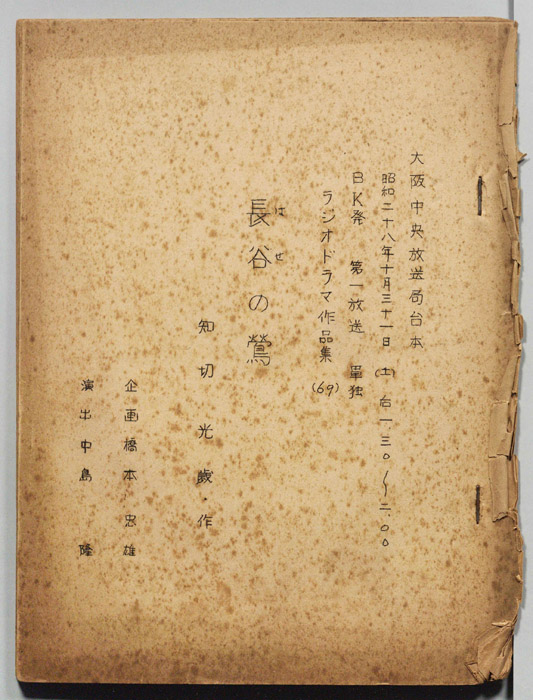 大阪中央放送局台本
昭和二十八年十月三十一日(土)后一三〇〜二.〇〇
BK発 第一放送 単独
ラジオドラマ作品集(69)
長谷の鶯
はせ
知切光歳・作
企画橋本忠雄
演出中島隆